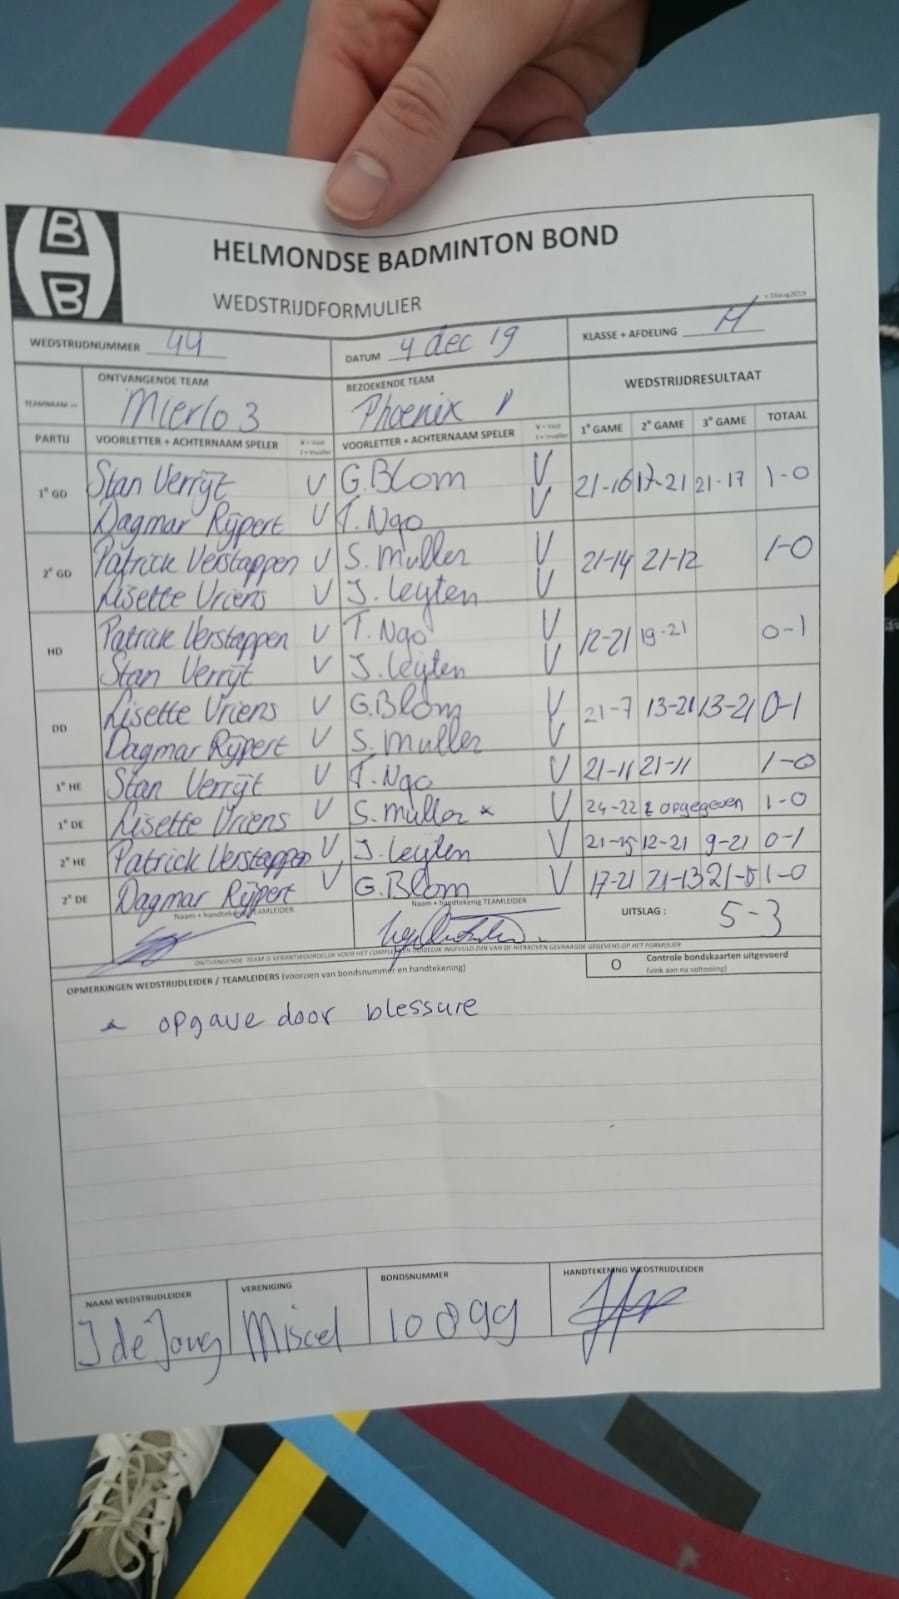 B
B
HELMONDSE BADMINTON BOND
WEDSTRIJDFORMULIER
WEDSTRIJDNUMMER 44 DATUM 4 dec 19 KLASSE + AFDELING H
ONTVANGENDE TEAM BEZOEKENDE TEAM WEDSTRIJDRESULTAAT
TEAMNAAM Mierlo 3 Phoenix 1
PARTIJ VOORLETTER + ACHTERNAAM SPELER VOORLETTER + ACHTERNAAM SPELER 1e GAME 2e GAME 3e GAME TOTAAL
1e GD Stan Verrijt V G. Blom V 21-16 17-21 21-17 1-0
Dagmar Rijpert V T. Ngo V
2e GD Patrick Verstappen V S. Muller V 21-14 21-12 1-0
Lisette Vriens V J. Leijten V
HD Patrick Verstappen V T. Ngo V 12-21 19-21 0-1
Stan Verrijt V J. Leijten V
DD Lisette Vriens V G. Blom V 21-7 13-21 13-21 0-1
Dagmar Rijpert V S. Muller V
1e HE Stan Verrijt V T. Ngo V 21-11 21-11 1-0
1e DE Lisette Vriens V S. Muller * V 24-22 opgegeven 1-0
2e HE Patrick Verstappen V J. Leijten V 21-15 12-21 9-21 0-1
2e DE Dagmar Rijpert V G. Blom V 17-21 21-13 1-0
Naam + handtekenig TEAMLEIDER Naam + handtekenig TEAMLEIDER UITSLAG : 5-3
OPMERKINGEN WEDSTRIJDLEIDER / TEAMLEIDERS (voorzien van bondsnummer en handtekening) O Controle bondskaarten uitgevoerd
(vink aan na voltooiing)
* opgave door blessure
NAAM WEDSTRIJDLEIDER VERENIGING BONDSNUMMER HANDTEKENING WEDSTRIJDLEIDER
J de Jong Miscel 100899